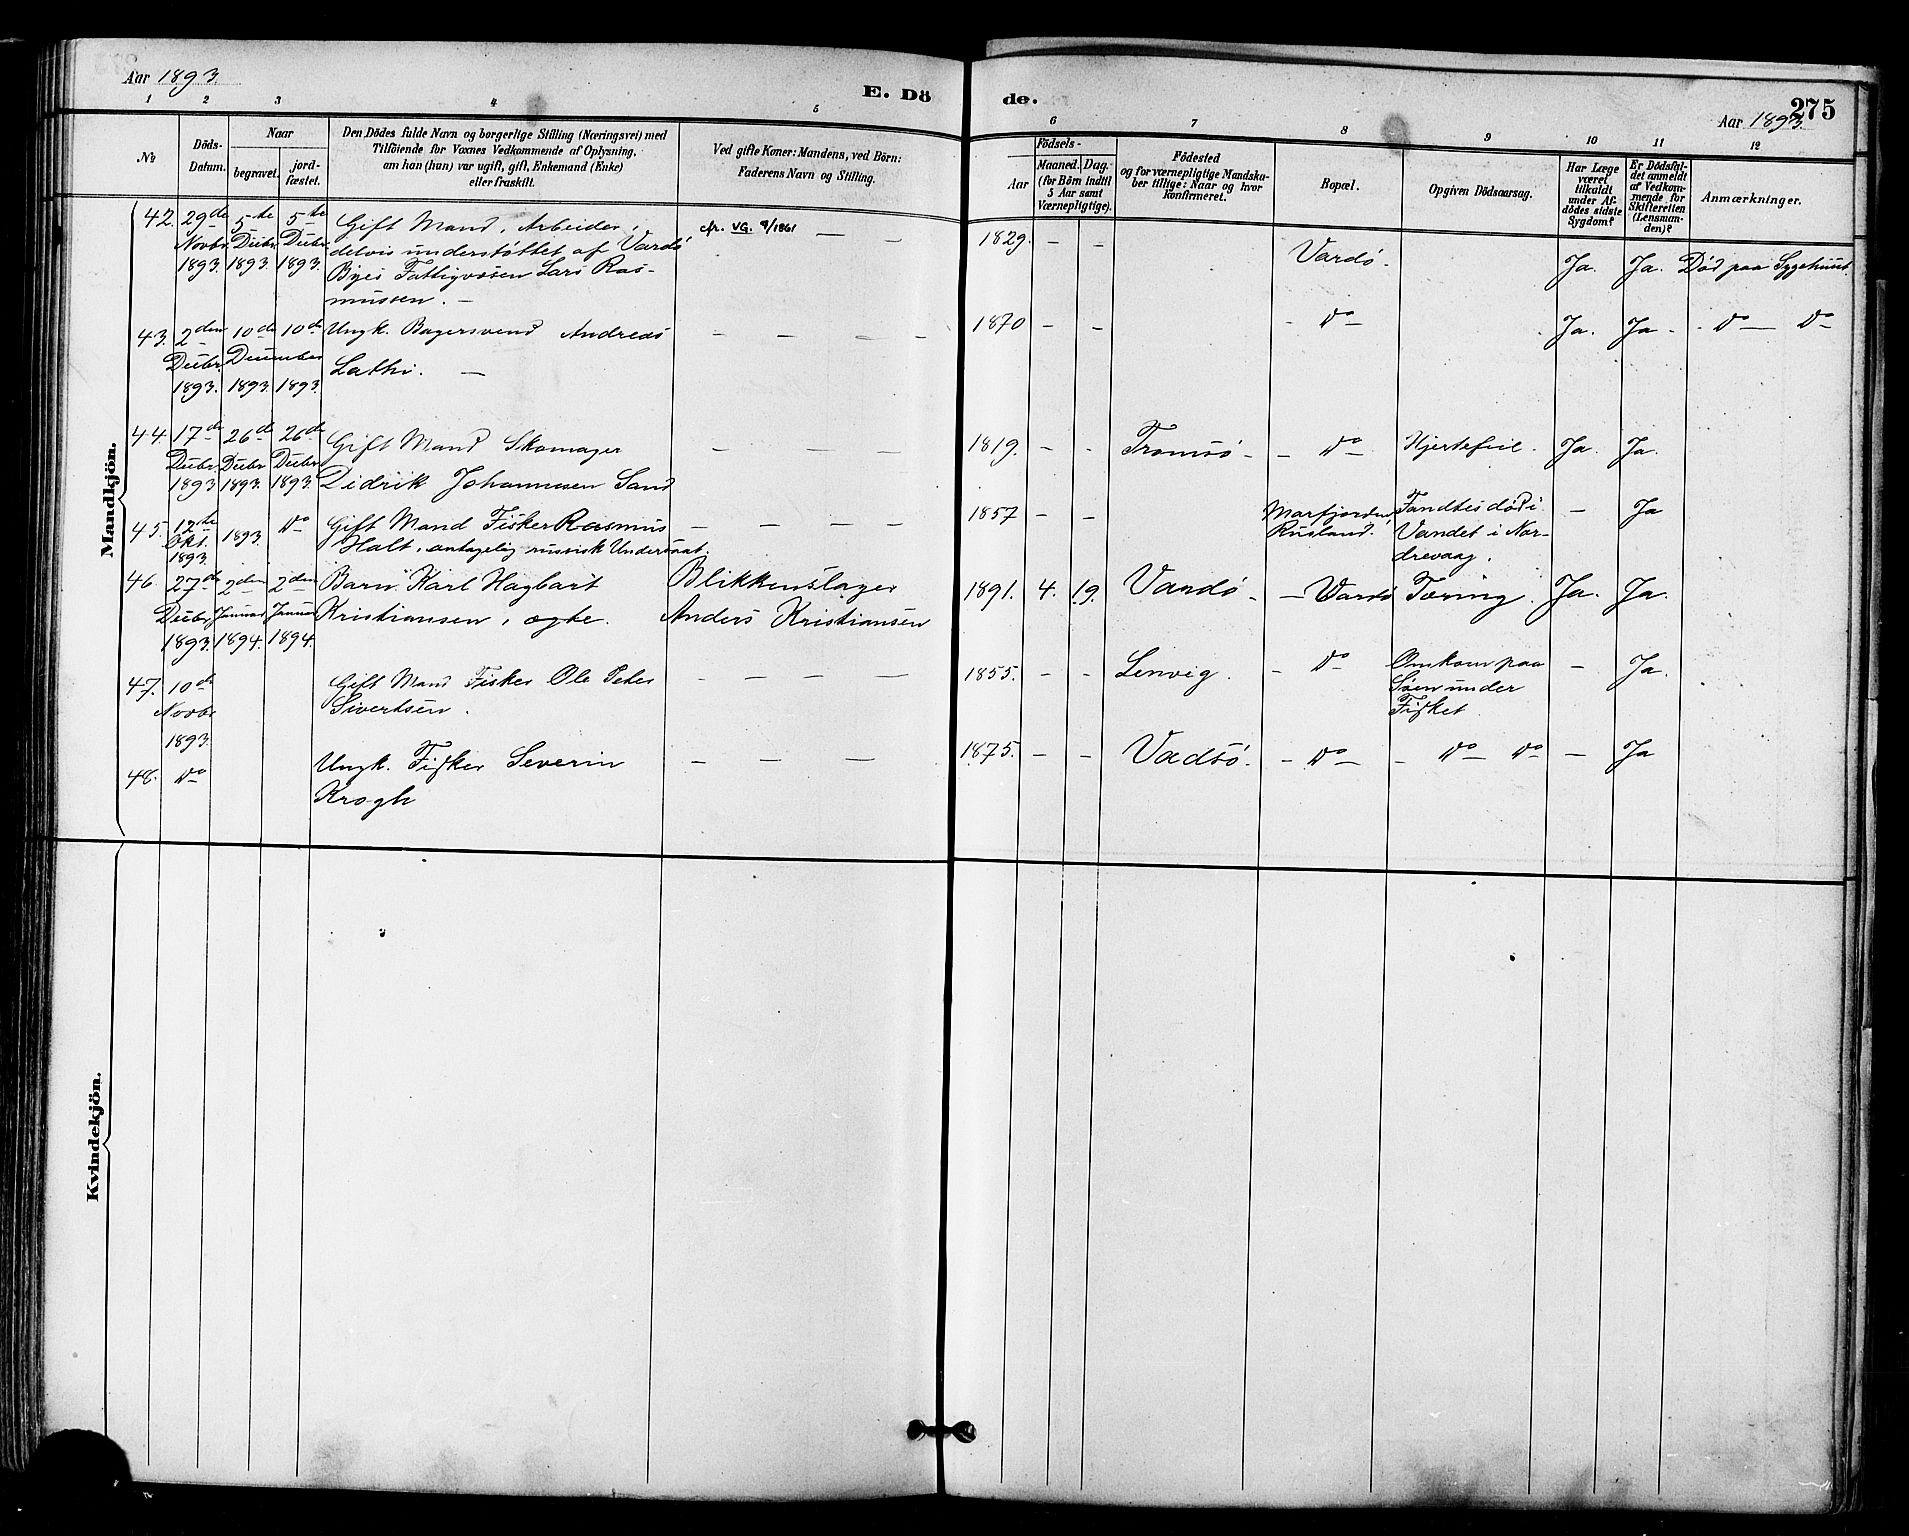 Aar 1893.
E. Döde.
275
Aar 1893
1 2 3 4 5 6 7 8 9 10 11 12
No
Döds-
Datum.
Naar
begravet.
jord-
fæstet.
Den Dödes fulde Navn og borgerlige Stilling (Næringsvei) med
Tilföiende for Voxnes Vedkommende af Oplysning,
om han (hun) var ugift, gift, Enkemand (Enke)
eller fraskilt.
Ved gifte Koner: Mandens, ved Börn:
Faderens Navn og Stilling.
Födsels-
Aar
Maaned. Dag.
(for Börn indtil
5 Aar samt
Værnepligtige).
Födested
og for værnepligtige Mandska-
ber tillige: Naar og hvor
konfirmeret.
Bopæl.
Opgiven Dödsaarsag.
Har Læge
været
tilkaldt
under Af-
dödes sidste
Sygdom?
Er Dödsfal-
det anmeldt
af Vedkom-
mende for
Skifteretten
(Lensman-
den)?
Anmærkninger.
Mandkjön.
42. 29de Novbr. 1893. 5te Decbr. 1893. 5te Decbr. 1893.
Gift Mand, Arbeider,
delvis understöttet af Vardö
Byes Fattigvæsen Lars Ras-
mussen. —
cfr. VG. 9/1861 — —
1829. — — Vardö. Ja. Ja. Död paa Sygehuset.
43. 2den Decbr. 1893. 10de 10de December 1893. 1893.
Ungk. Bagersvend Andreas
Lathi. —
— — — —
1870 — — - Do — Ja. Ja. - Do — Do
44. 17de Decbr. 1893 26de Decbr. 1893. 26de Decbr. 1893.
Gift Mand Skomager
Didrik Johannesen Sand
— — —
1819. — - Tromsö - - Do — Hjertefeil. Ja. Ja.
45. 12te Okt. 1893. 1893. Do
Gift Mand Fisker Rasmus
Halt, antagelig russisk Undersaat.
— — — —
1857 — —
Rusland.
Fandtes död i
Vandet i Nor-
drevaag.
— Ja
46. 27de Decbr. 1893. 2den Januar 1894. 2den Januar 1894.
Barn Karl Hagbart
Kristiansen, ægte.
Blikkenslager
Anders Kristiansen
1891. 4. 19. Vardö - - Vardö Tæring. Ja. Ja.
47. 10de Novbr 1893.
Gift Mand Fisker Ole Peter
Sivertsen.
— — — —
1855. — - Lenvig. - Do
Omkom paa
Söen under
Fisket.
— Ja.
48. Do
Ungk. Fisker Severin
Krogh
— — —
1875. — — Vadsö. - Do — - Do — Do — Ja
Kvindekjön.